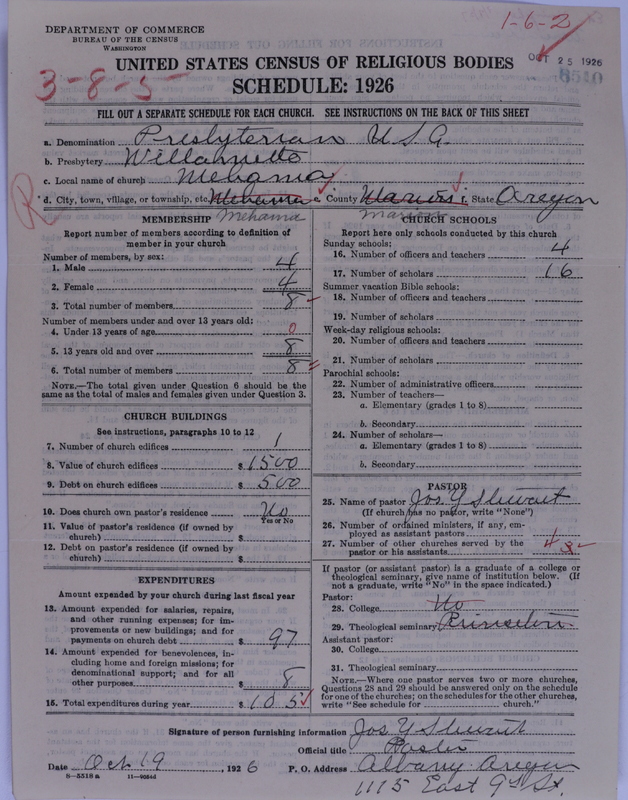 DEPARTMENT OF COMMERCE
BUREAU OF THE CENSUS
WASHINGTON
1-6-2
OCT 25 1926
8510
3-8-5
UNITED STATES CENSUS OF RELIGIOUS BODIES
SCHEDULE: 1926
FILL OUT A SEPARATE SCHEDULE FOR EACH CHURCH. SEE INSTRUCTIONS ON THE BACK OF THIS SHEET
a. Denomination Presbyterian U.S.A.
b. Presbytery Willamette
c. Local name of church Mehama
R
d. City, town, village, or township, etc. Mehama County Marion State Oregon
Mehama Marion
MEMBERSHIP
Report number of members according to definition of
member in your church
Number of members, by sex:
1. Male 4
2. Female 4
3. Total number of members 8
Number of members under and over 13 years old:
4. Under 13 years of age 0
5. 13 years old and over 8
6. Total number of members 8
NOTE.—The total given under Question 6 should be the
same as the total of males and females given under Question 3.
CHURCH BUILDINGS
See instructions, paragraphs 10 to 12
7. Number of church edifices 1
8. Value of church edifices $ 1500
9. Debt on church edifices $ 500
10. Does church own pastor's residence No
Yes or No
11. Value of pastor's residence (if owned by
church) $
12. Debt on pastor's residence (if owned by
church) $
EXPENDITURES
Amount expended by your church during last fiscal year
13. Amount expended for salaries, repairs,
and other running expenses; for im-
provements or new buildings; and for
payments on church debt $ 97
14. Amount expended for benevolences, in-
cluding home and foreign missions; for
denominational support; and for all
other purposes $ 8
15. Total expenditures during year $ 105
CHURCH SCHOOLS
Report here only schools conducted by this church
Sunday schools:
16. Number of officers and teachers 4
17. Number of scholars 16
Summer vacation Bible schools:
18. Number of officers and teachers
19. Number of scholars
Week-day religious schools:
20. Number of officers and teachers
21. Number of scholars
Parochial schools:
22. Number of administrative officers
23. Number of teachers—
a. Elementary (grades 1 to 8)
b. Secondary
24. Number of scholars—
a. Elementary (grades 1 to 8)
b. Secondary
PASTOR
25. Name of pastor Jos. Y Stewart
(If church has no pastor, write "None")
26. Number of ordained ministers, if any, em-
ployed as assistant pastors
27. Number of other churches served by the
pastor or his assistants 4
If pastor (or assistant pastor) is a graduate of a college or
theological seminary, give name of institution below. (If
not a graduate, write "No" in the space indicated.)
Pastor:
28. College No
29. Theological seminary Princeton
Assistant pastor:
30. College
31. Theological seminary
NOTE.—Where one pastor serves two or more churches,
Questions 28 and 29 should be answered only on the schedule
for one of the churches; on the schedules for the other churches,
write "See schedule for church."
Signature of person furnishing information Jos Y Stewart
Official title Pastor
Date Oct 19, 1926 P. O. Address Albany Oregon
8—5518 a 11—9084d 1115 East 9th St.